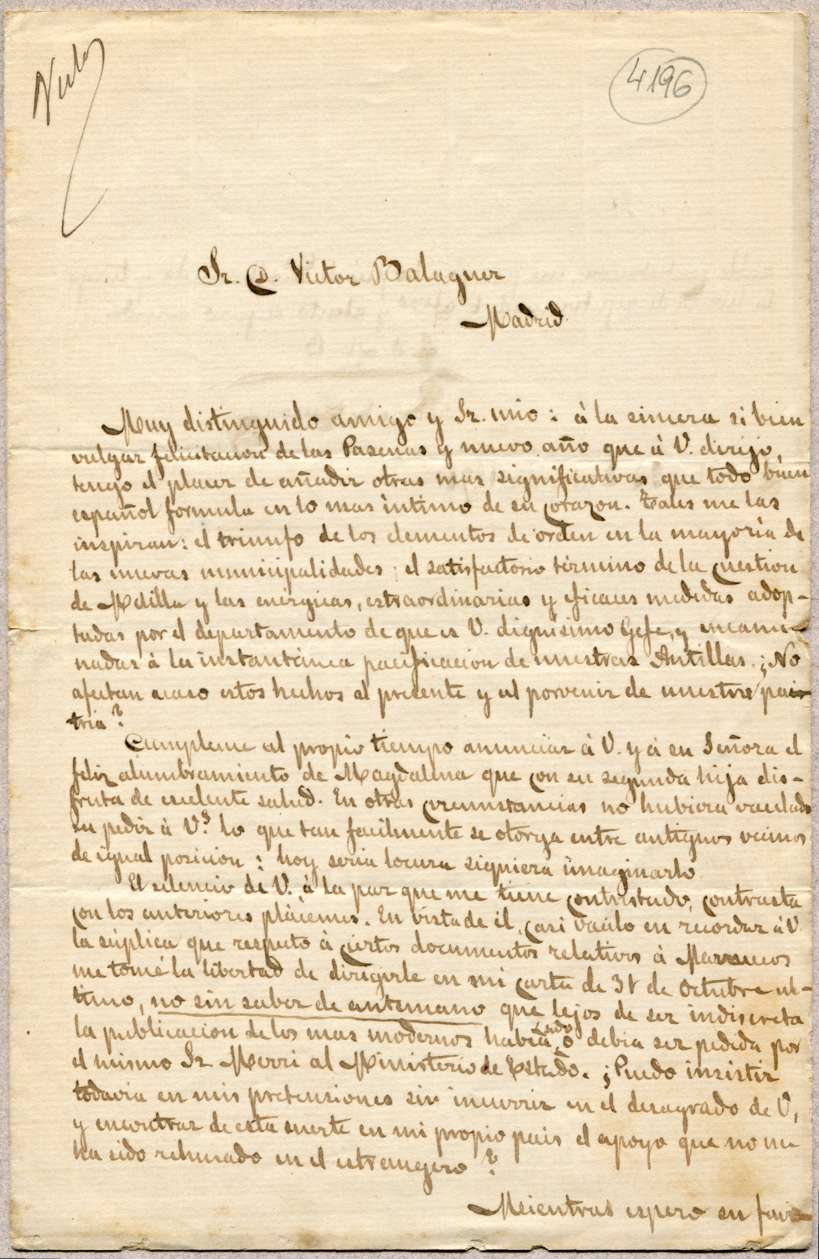 4196
Sr. D. Victor Balaguer
Madrid.
Muy distinguido amigo y Sr. mio: á la sincera si bien
vulgar felicitacion de las Pascuas y nuevo año que á V. dirijo,
tengo el placer de añadir otras mas significativas que todo buen
español formula en lo mas íntimo de su corazon. Tales me las
inspiran: el triunfo de los elementos de orden en la mayoría de
las nuevas municipalidades; el satisfactorio término de la cuestion
de Melilla y las enérgicas, estraordinarias y eficaces medidas adop-
tadas por el departamento de que es V. dignísimo Gefe, y encami-
nadas á la instantánea pacificacion de nuestras Antillas. ¿No
afectan acaso estos hechos al presente y al porvenir de nuestra pa-
tria?
Cumpleme al propio tiempo anunciar á V. y á su Señora el
feliz alumbramiento de Magdalena que con su segunda hija dis-
fruta de escelente salud. En otras circunstancias no hubiera vacilado
en pedir á Vs. lo que tan facilmente se otorga entre antiguos vecinos
de igual posicion: hoy seria locura siquiera imaginarlo.
El silencio de V. á la par que me tiene contristado, contrasta
con los anteriores plácemes. En vista de él, casi vacilo en recordar á V.
la súplica que respeto á ciertos documentos relativos á Marruecos
me tomé la libertad de dirigirle en mi carta de 31 de Octubre úl-
timo, no sin saber de antemano que lejos de ser indiscreta
la publicacion de los mas modernos habia sido ó debia ser pedida por
el mismo Sr. Merri al Ministerio de Estado. ¿Puedo insistir
todavia en mis pretensiones sin incurrir en el desagrado de V,
y encontrar de esta suerte en mi propio pais el apoyo que no me
ha sido rehusado en el estrangero?
Mientras espero su